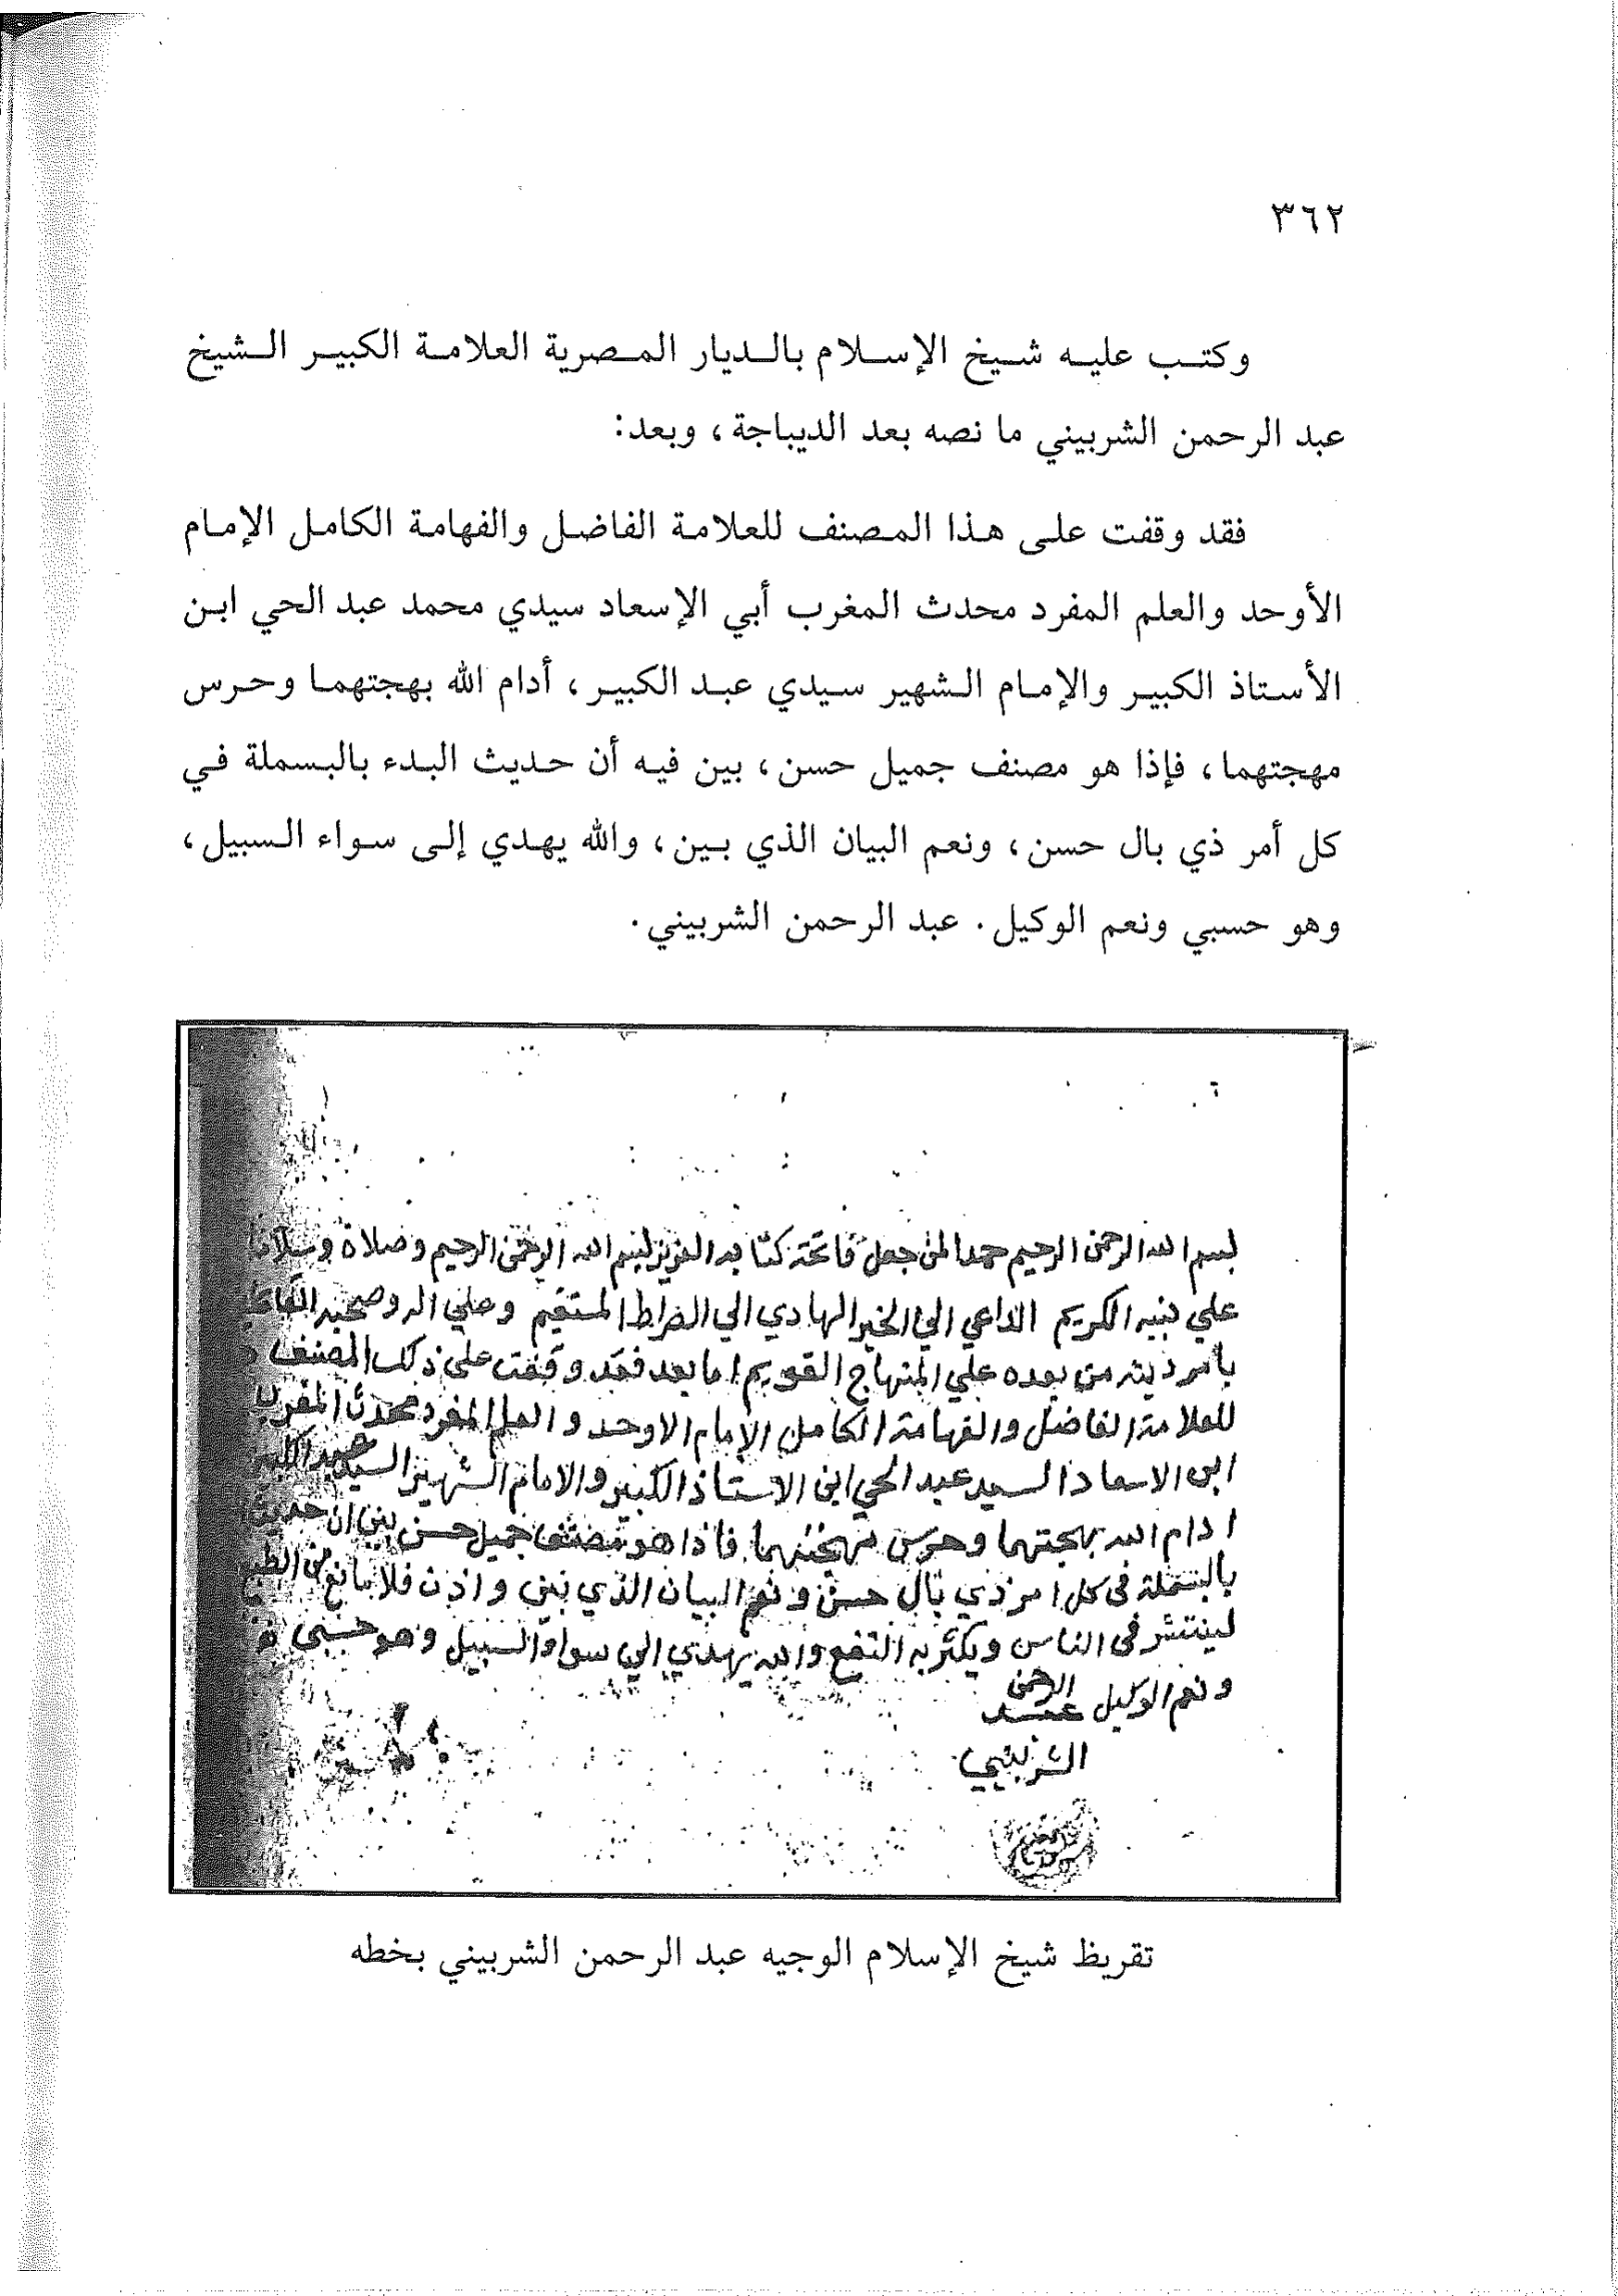 ٣٦٢
وكتب عليه شيخ الإسلام بالديار المصرية العلامة الكبير الشيخ
عبد الرحمن الشربيني ما نصه بعد الديباجة، وبعد:
فقد وقفت على هذا المصنف للعلامة الفاضل والفهامة الكامل الإمام
الأوحد والعلم المفرد محدث المغرب أبي الإسعاد سيدي محمد عبد الحي ابن
الأستاذ الكبير والإمام الشهير سيدي عبد الكبير، أدام الله بهجتهما وحرس
مهجتهما، فإذا هو مصنف جميل حسن، بين فيه أن حديث البدء بالبسملة في
كل أمر ذي بال حسن، ونعم البيان الذي بين، والله يهدي إلى سواء السبيل،
وهو حسبي ونعم الوكيل. عبد الرحمن الشربيني.
بسم الله الرحمن الرحيم حمدا لمن جعل فاتحة كتابه العزيز بسم الله الرحمن الرحيم وصلاة وسلاما
علي نبيه الكريم الداعي الي الخير الهادي الي الصراط المستقيم وعلي اله وصحبه
بامر دينه من بعده علي المنهاج القويم اما بعد فقد وقفت علي ذلك المصنف
للعلامة الفاضل والفهامة الكامل الامام الاوحد والعلم المفرد محدث المغرب
ابي الاسعاد السيد عبد الحي ابن الاستاذ الكبير والامام الشهير السيد عبد الكبير
ادام الله بهجتهما وحرس مهجتهما فاذا هو مصنف جميل حسن بين ان حديث
بالبسملة في كل امر ذي بال حسن ونعم البيان الذي بين واذن فلا مانع من الطبع
لينتشر في الناس ويكثر به النفع والله يهدي الي سواء السبيل وهو حسبي
ونعم الوكيل عبد الرحمن
الشربيني
تقريظ شيخ الإسلام الوجيه عبد الرحمن الشربيني بخطه